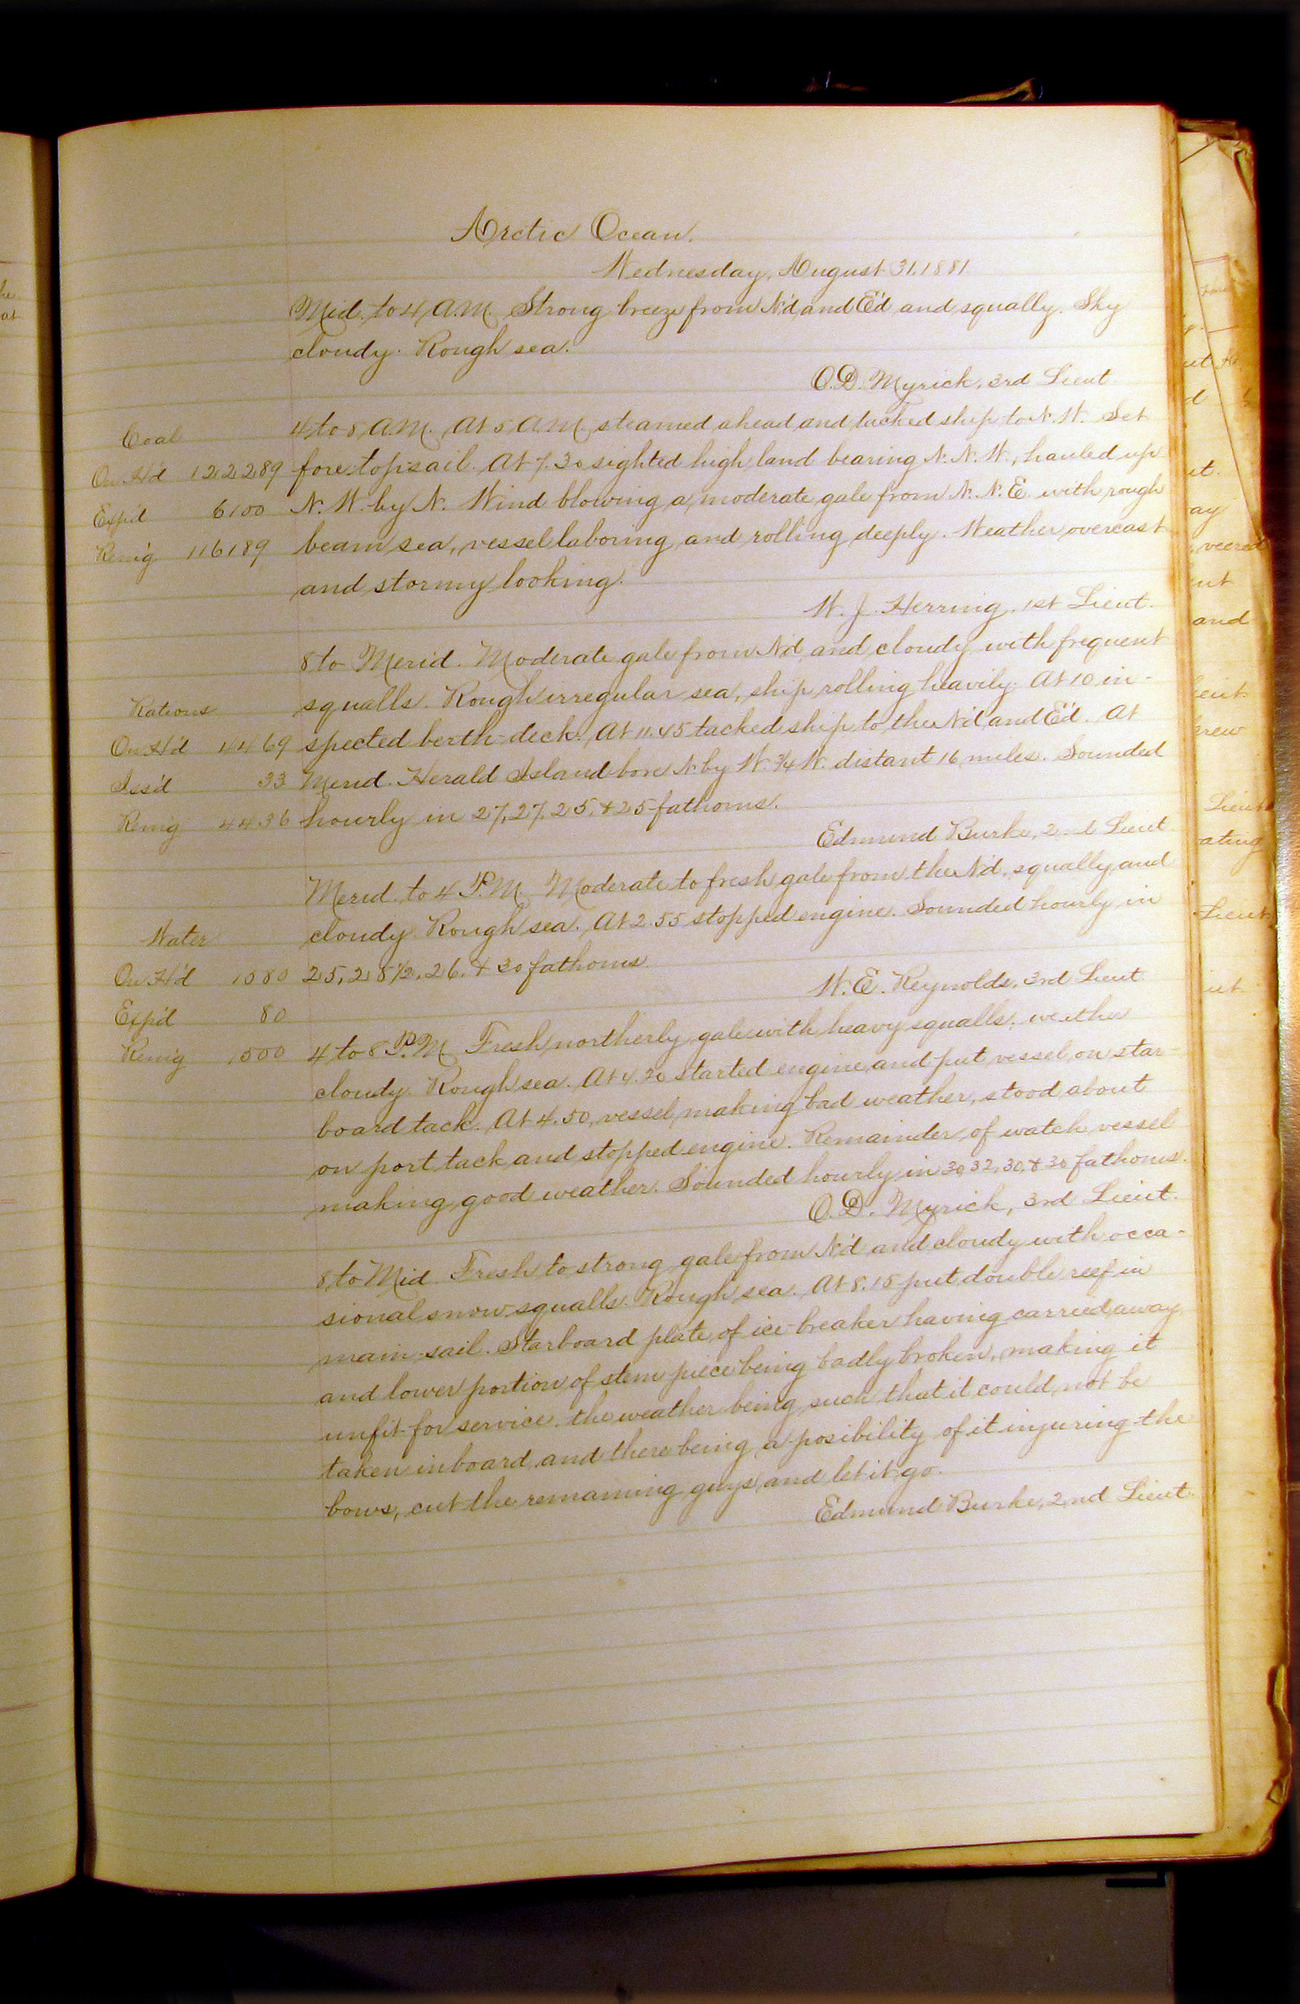 Arctic Ocean.
Wednesday, August 31, 1881.
Mid. to 4 A.M. Strong breeze from N'd and E'd and squally. Sky
cloudy. Rough sea.
O.D. Myrick, 3rd Lieut
4 to 8 A.M. At 5 A.M. steamed ahead and tacked ship to N.W. Set
fore-topsail. At 7.30 sighted high land bearing N.N.W., hauled up
N.W. by N. Wind blowing a moderate gale from N.N.E. with rough
beam sea, vessel laboring and rolling deeply. Weather overcast
and stormy looking.
W. J. Herring, 1st Lieut.
8 to Merid. Moderate gale from N'd, and cloudy with frequent
squalls. Rough irregular sea, ship rolling heavily. At 10 in-
spected berth-deck. At 11.45 tacked ship to the N'd and E'd. At
Merid. Herald Island bore N by W. 3/4 W. distant 16 miles. Sounded
hourly in 27, 27, 25, & 25 fathoms.
Edmund Burke, 2nd Lieut.
Merid. to 4 P.M. Moderate to fresh gale from the N'd, squally and
cloudy. Rough sea. At 2.55 stopped engine. Sounded hourly in
25, 28 1/2, 26, & 30 fathoms.
W. E. Reynolds, 3rd Lieut
4 to 8 P.M. Fresh northerly gale with heavy squalls, weather
cloudy. Rough sea. At 4.20 started engine and put vessel on star-
board tack. At 4.50, vessel making bad weather, stood about
on port tack and stopped engine. Remainder of watch vessel
making good weather. Sounded hourly in 30, 32, 30, & 30 fathoms.
O.D. Myrick, 3rd Lieut.
8 to Mid. Fresh to strong gale from N'd and cloudy with occa-
sional snow squalls. Rough sea. At 8.15 put double reef in
main-sail. Starboard plate of ice-breaker having carried away
and lower portion of stem piece being badly broken, making it
unfit for service, the weather being such that it could not be
taken inboard, and there being a posibility of it injuring the
bows, cut the remaining guys and let it go.
Edmund Burke, 2nd Lieut.
Coal
On H'd 122289
Exp'd 6100
Rem'g 116189
Rations
On H'd 4469
Iss'd 33
Rem'g 4436
Water
On H'd 1580
Exp'd 80
Rem'g 1500